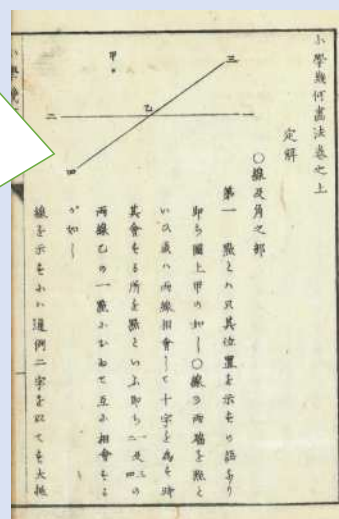 小學幾何畫法卷之上
定解
○線及角之部
第一 點とハ只其位置を示すの語なり
即ち圖上甲の如し○線の兩端を點と
いひ或ハ兩線相會して十字を為す時
其會する所を點といふ即ち一二及三四の
兩線乙の一點に於て互に相會するが
如し
線を示すにハ通例二字を以てす大抵
甲
三
乙
二
一
四